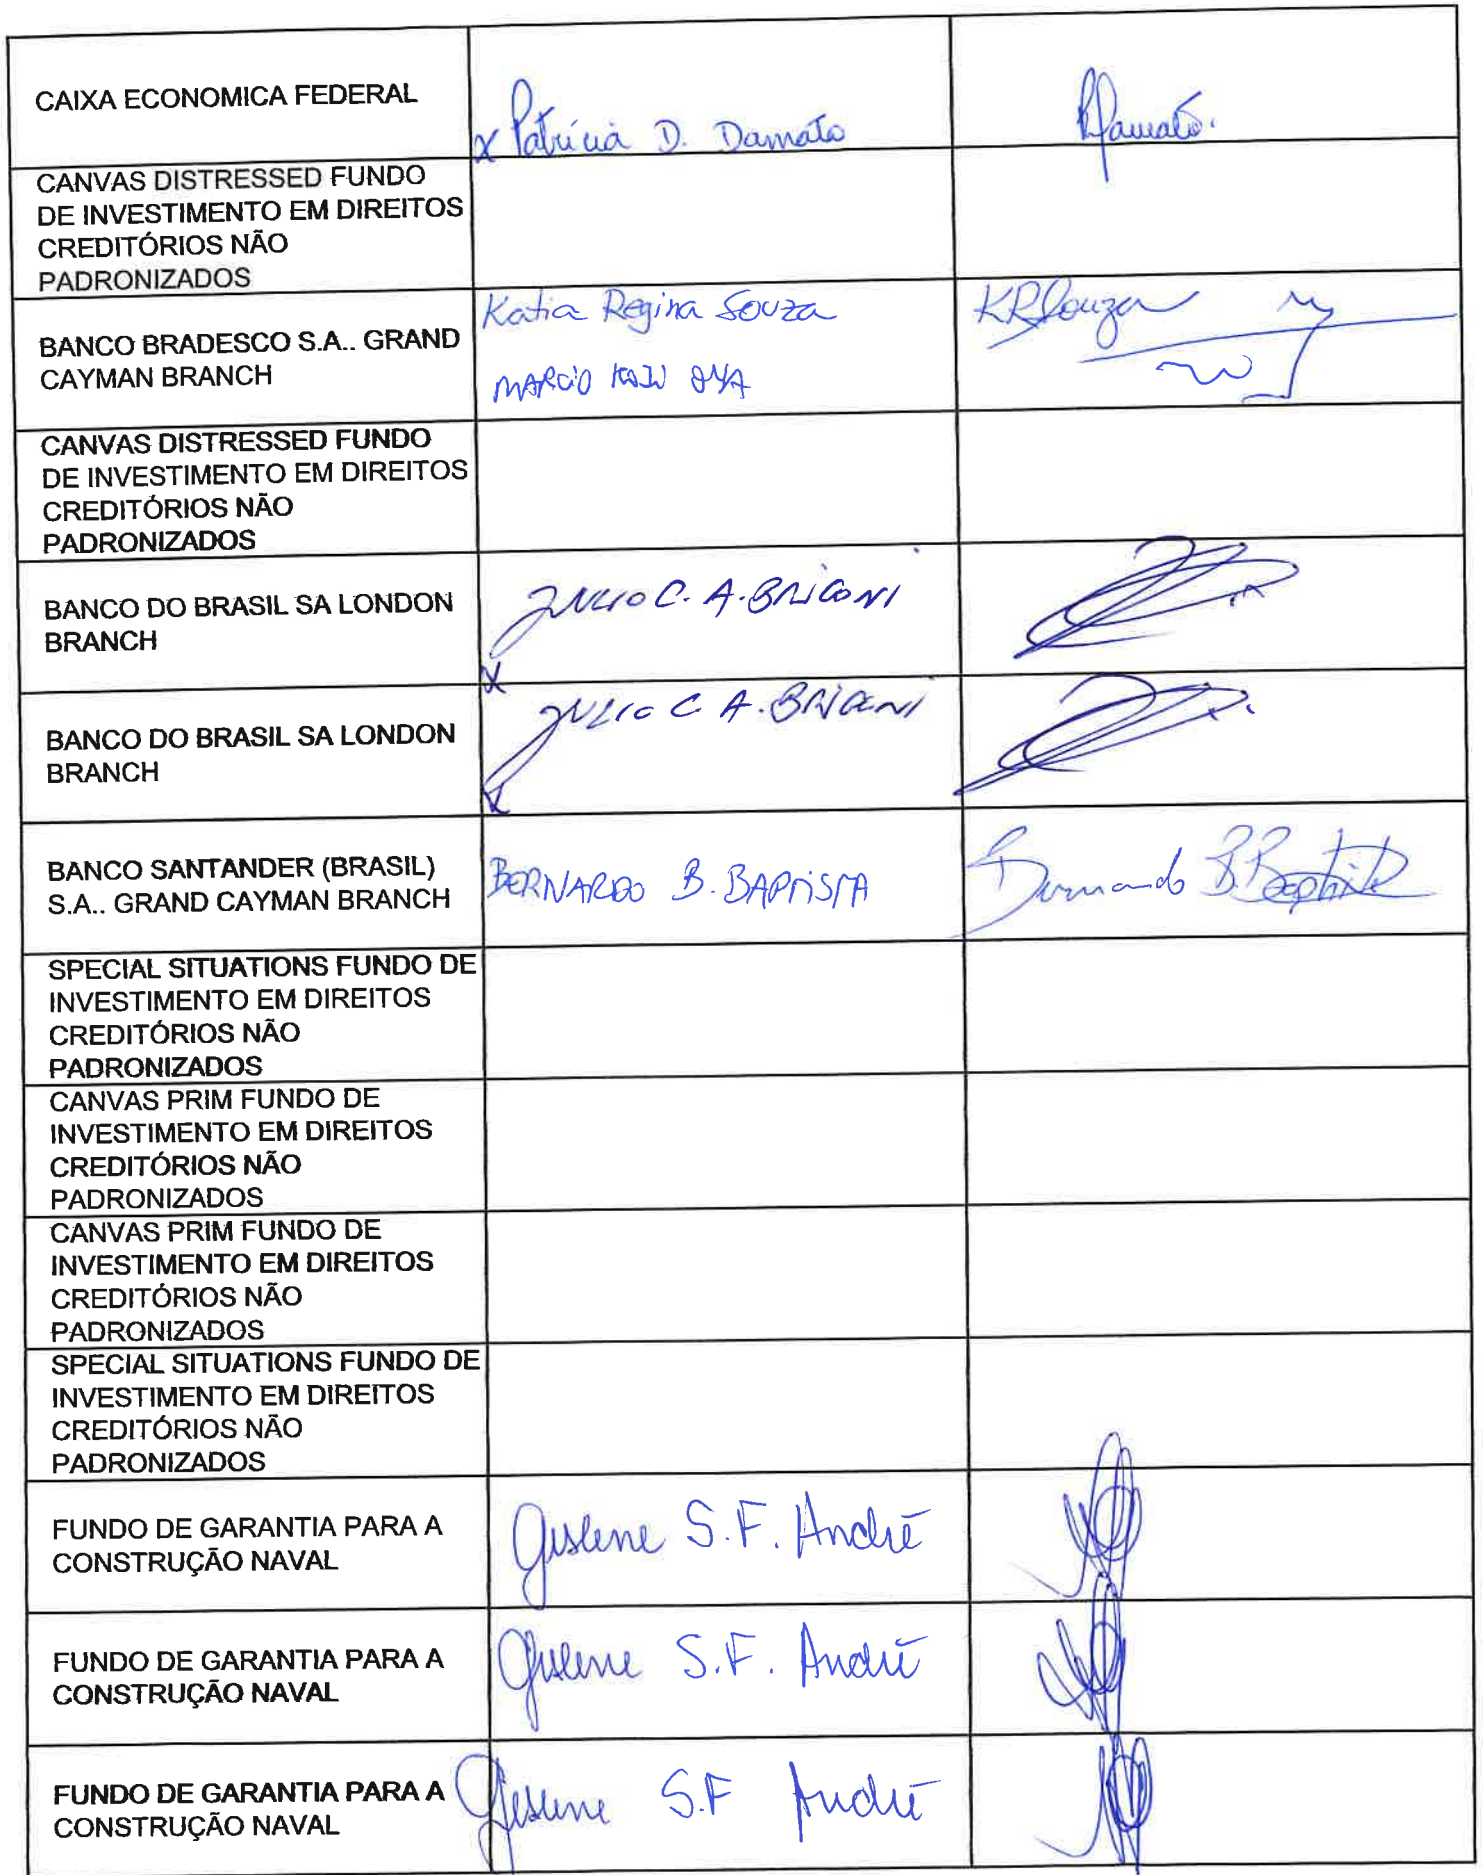 CAIXA ECONOMICA FEDERAL
x Patrícia D. Damato
CANVAS DISTRESSED FUNDO
DE INVESTIMENTO EM DIREITOS
CREDITÓRIOS NÃO
PADRONIZADOS
BANCO BRADESCO S.A.. GRAND
CAYMAN BRANCH
Katia Regina Souza
MARCIO
KRSouza
CANVAS DISTRESSED FUNDO
DE INVESTIMENTO EM DIREITOS
CREDITÓRIOS NÃO
PADRONIZADOS
BANCO DO BRASIL SA LONDON
BRANCH
x JULIO C. A. BRIGONI
BANCO DO BRASIL SA LONDON
BRANCH
x JULIO C A. BRIGONI
BANCO SANTANDER (BRASIL)
S.A.. GRAND CAYMAN BRANCH
BERNARDO B. BAPTISTA
Bernardo B. Baptista
SPECIAL SITUATIONS FUNDO DE
INVESTIMENTO EM DIREITOS
CREDITÓRIOS NÃO
PADRONIZADOS
CANVAS PRIM FUNDO DE
INVESTIMENTO EM DIREITOS
CREDITÓRIOS NÃO
PADRONIZADOS
CANVAS PRIM FUNDO DE
INVESTIMENTO EM DIREITOS
CREDITÓRIOS NÃO
PADRONIZADOS
SPECIAL SITUATIONS FUNDO DE
INVESTIMENTO EM DIREITOS
CREDITÓRIOS NÃO
PADRONIZADOS
FUNDO DE GARANTIA PARA A
CONSTRUÇÃO NAVAL
Gislene S.F. André
FUNDO DE GARANTIA PARA A
CONSTRUÇÃO NAVAL
Gislene S.F. André
FUNDO DE GARANTIA PARA A
CONSTRUÇÃO NAVAL
Gislene S.F André